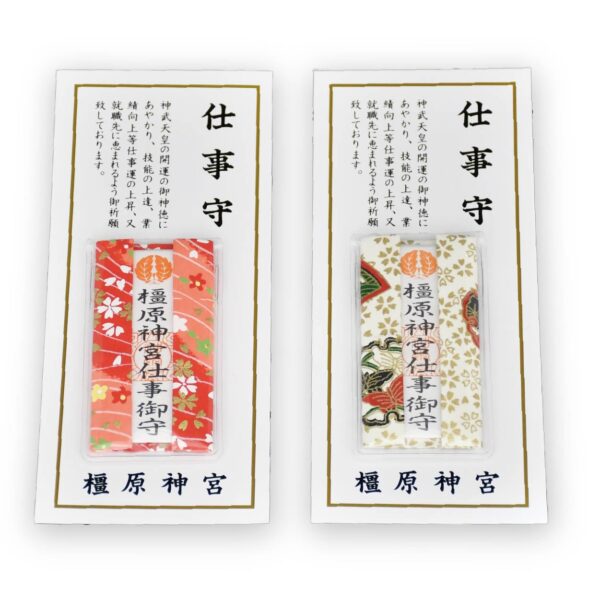 仕事守
神武天皇の開運の御神徳に
あやかり、技能の上達、業
績向上等仕事運の上昇、又
就職先に恵まれるよう御祈願
致しております。
橿原神宮仕事御守
橿原神宮
仕事守
神武天皇の開運の御神徳に
あやかり、技能の上達、業
績向上等仕事運の上昇、又
就職先に恵まれるよう御祈願
致しております。
橿原神宮仕事御守
橿原神宮